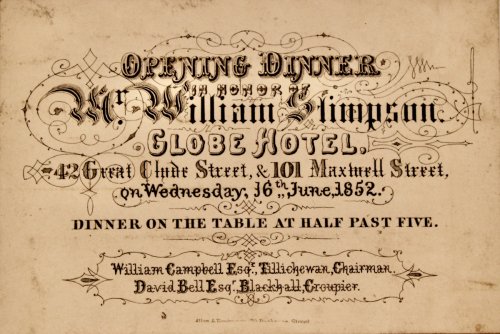 OPENING DINNER
IN HONOR OF
Mr. William Stimpson.
GLOBE HOTEL,
42 Great Clyde Street, & 101 Maxwell Street,
on Wednesday, 16th June, 1852.
DINNER ON THE TABLE AT HALF PAST FIVE.
William Campbell Esqr., Tillichewan, Chairman.
David Bell Esqr. Blackhall, Croupier.